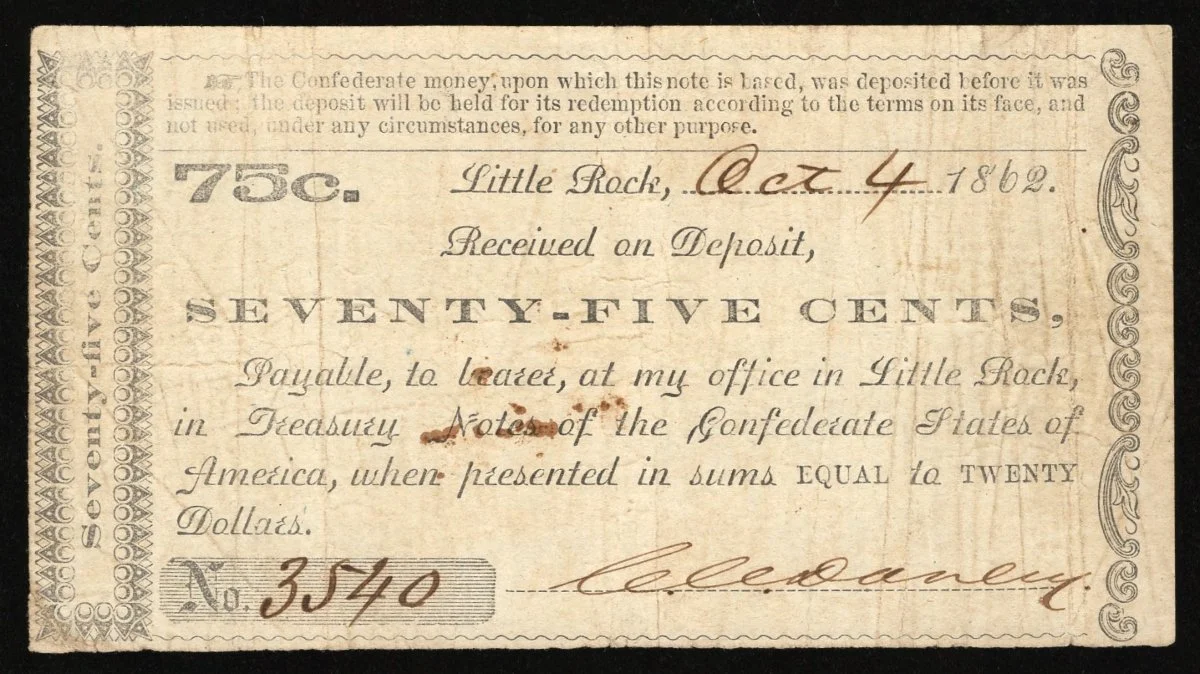 ☞ The Confederate money, upon which this note is based, was deposited before it was
issued; the deposit will be held for its redemption according to the terms on its face, and
not used, under any circumstances, for any other purpose.
75c. Little Rock, Oct 4 1862.
Received on Deposit,
SEVENTY-FIVE CENTS,
Payable, to bearer, at my office in Little Rock,
in Treasury Notes of the Confederate States of
America, when presented in sums EQUAL to TWENTY
Dollars.
No. 3540 C. C. Danley.
Seventy-five Cents.